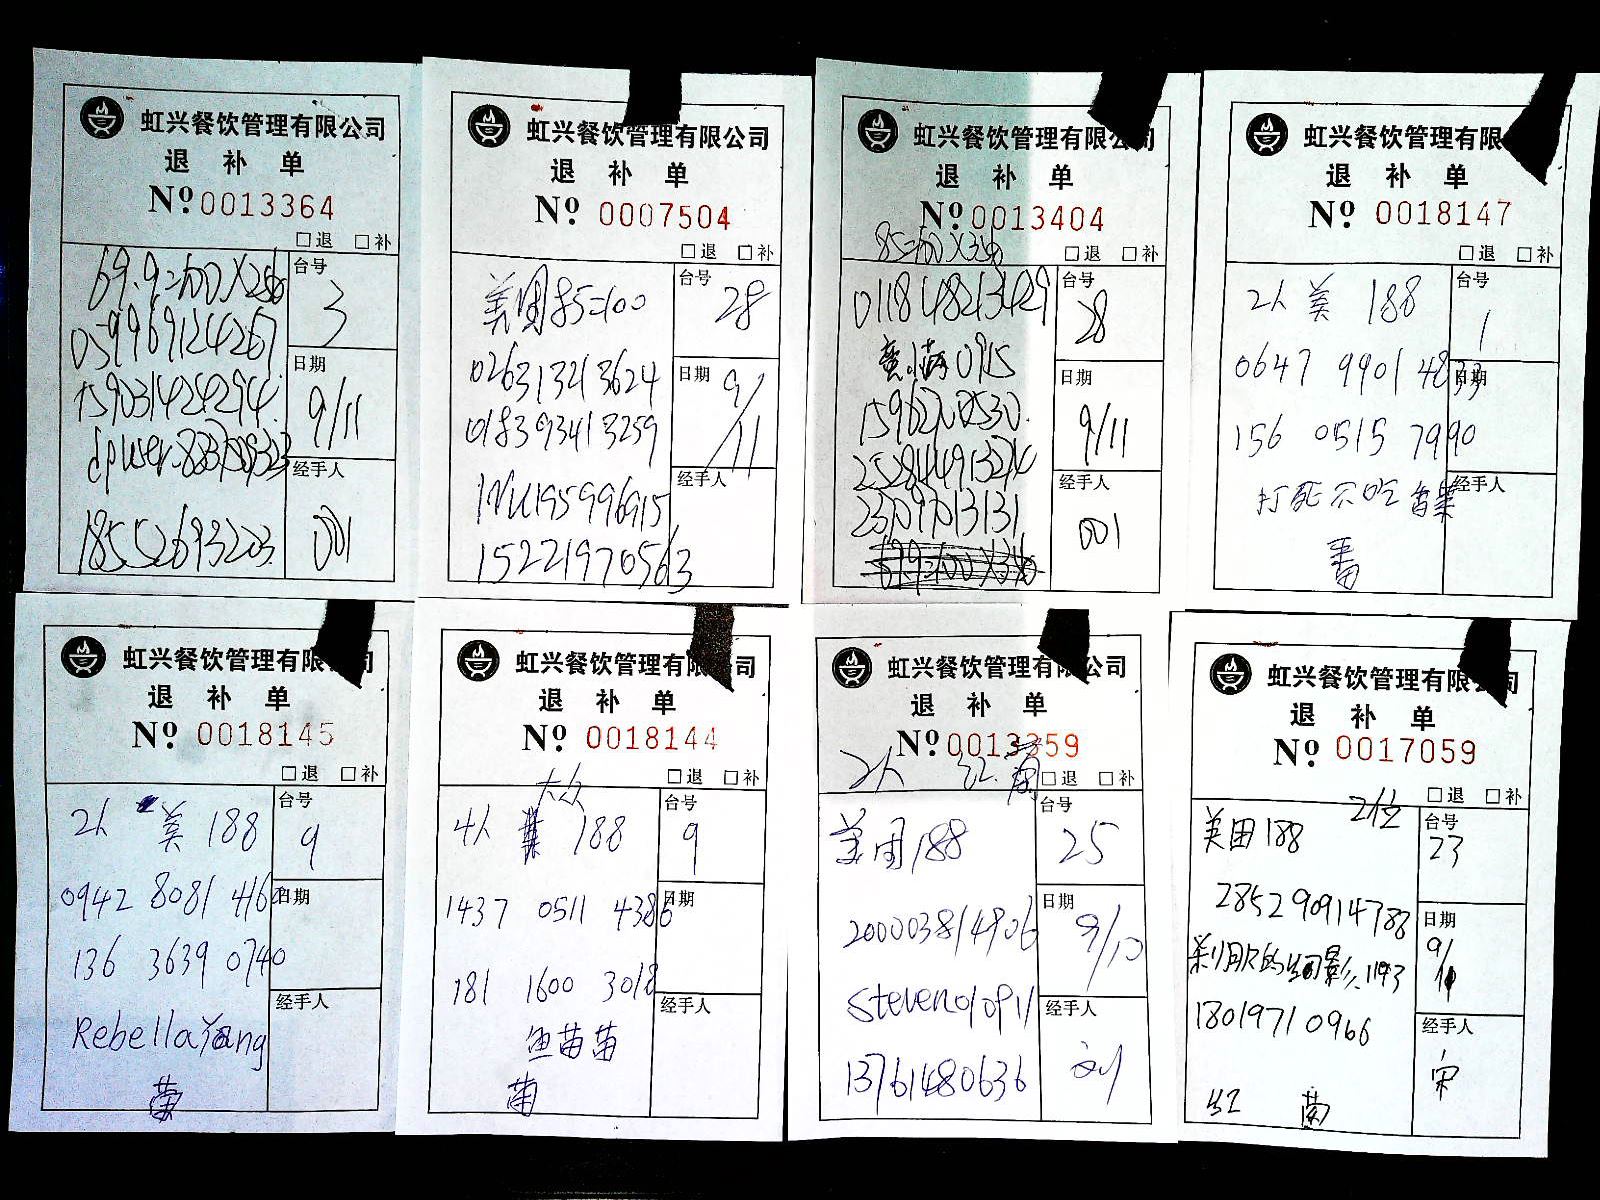 虹兴餐饮管理有限公司
退 补 单
Nº 0013364
□退 □补
69.9=100×2份
台号
3
059969124267
日期
9/11
159031424294
经手人
001
18552693223
虹兴餐饮管理有限公司
退 补 单
Nº 0007504
□退 □补
美团85=100
台号
28
026313213624
日期
9/11
018393413259
经手人
15221970563
虹兴餐饮管理有限公司
退 补 单
Nº 0013404
85=100×3份
□退 □补
台号
28
011848213429
日期
9/11
经手人
001
虹兴餐饮管理有限
退 补 单
Nº 0018147
□退 □补
2人 美 188
台号
1
0647 9901 4833
日期
156 0515 7990
打死不吃香菜
经手人
虹兴餐饮管理有限 司
退 补 单
Nº 0018145
□退 □补
2人 美 188
台号
9
0942 8081 4160
日期
136 3639 0740
经手人
RebellaYang
虹兴餐饮管理有限 司
退 补 单
Nº 0018144
□退 □补
大众
4人 188
台号
9
1437 0511 4386
日期
181 1600 3018
经手人
鱼苗苗
虹兴餐饮管理有限公司
退 补 单
Nº 0013359
2人 红
□退 □补
美团188
台号
25
200003814906
日期
9/10
steven01091
经手人
刘
13761480636
虹兴餐饮管理有限 司
退 补 单
Nº 0017059
2位
□退 □补
美团188
台号
23
285290914788
日期
18019710966
经手人
宋
红